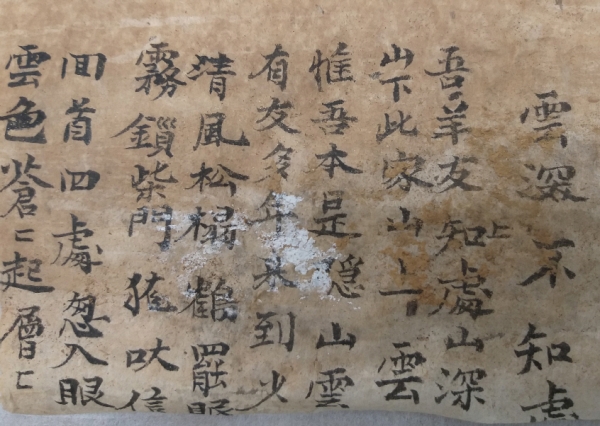 雲深不知處
吾羊友知處山深
山下此家山上雲
惟吾本是隱山雲
有友多年未到少
清風松榻鶴罷眠
霧鎖柴門猿吠信
回首四處忽入眼
雲色蒼〻起層〻